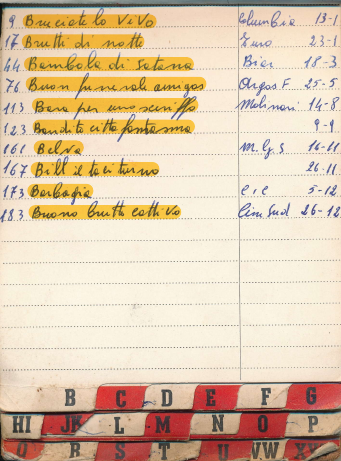 9 Bruciatelo Vivo Columbia 13-1
17 Brutti di notte Euro 23-1
44 Bambola di satana Biar 18-3
76 Buon funerale amigos Argos F 25-5
113 Bara per uno sceriffo Molinari 14-8
123 Bandito citta fantasma 9-9
161 Belva M.G.S 16-11
167 Bill il taciturno 26-11
173 Barbagia C.I.C 5-12
183 Buono brutto cattivo Cin Sud 26-12
B C D E F G
HI JK L M N O P
R S T U VW XY